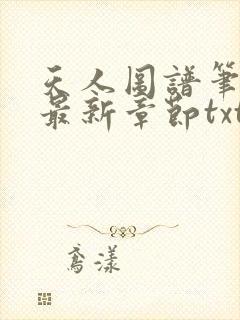 天人图譜筆
最新章節txt
鸢漾